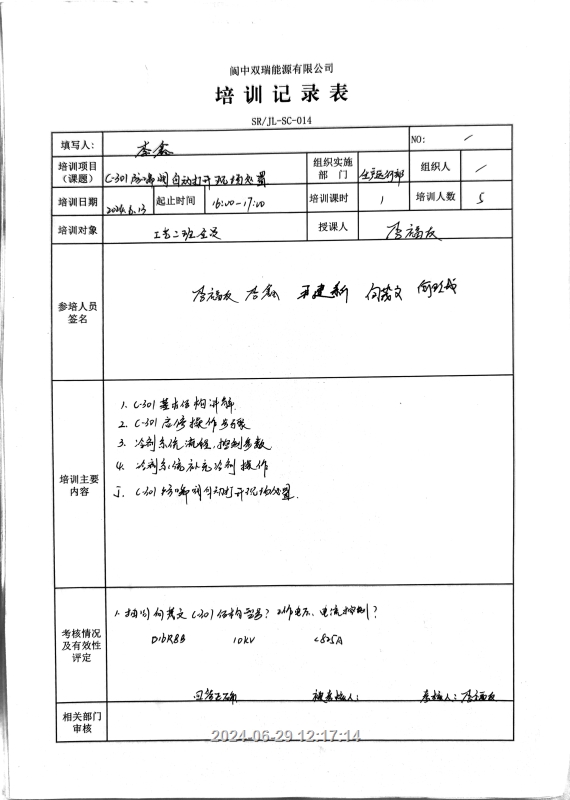 阆中双瑞能源有限公司
培训记录表
SR/JL-SC-014
填写人： 李鑫 NO: /
培训项目（课题） C-301防喘阀自动打开现场处置 组织实施部门 生产运行部 组织人 /
培训日期 2024.6.13 起止时间 16:00-17:00 培训课时 1 培训人数 5
培训对象 工艺二班全员 授课人 李福友
参培人员签名 李福友 李鑫 向茂文
培训主要内容
1. C-301基本结构讲解.
2. C-301启停操作步骤
3. 冷剂系统流程，控制参数
4. 冷剂系统补充冷剂操作
5. C-301防喘阀自动打开现场处置.
考核情况及有效性评定
1. 抽问向茂文C-301结构型号？工作电压、电流控制？
10KV <825A
回答正确 被考核人： 考核人：李福友
相关部门审核
2024-06-29 12:17:14